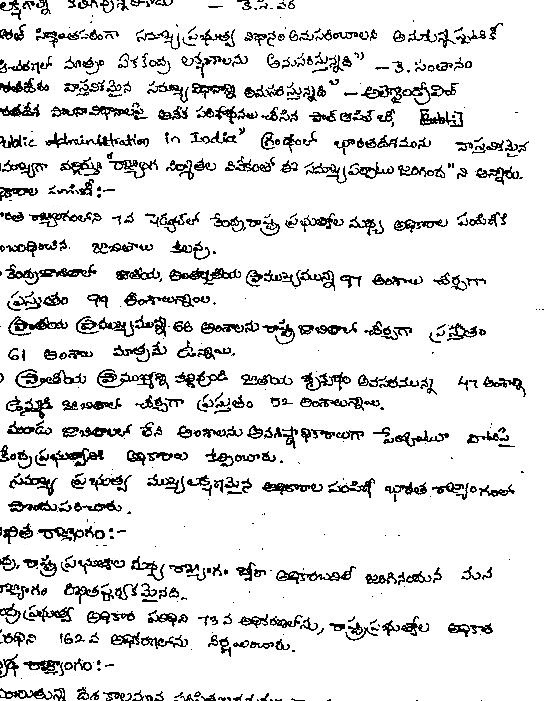 లక్షణాన్ని కలిగివున్న - కె.సి.వేర్
భారత్ సిద్ధాంతపరంగా సమాఖ్య ప్రభుత్వ విధానం అనుసరించాలని అనుకున్నప్పటికీ
ఆచరణలో మాత్రం ఏకకేంద్ర లక్షణాలను అనుసరిస్తున్నది" - కె. సంతానం
వాస్తవికమైన సమాఖ్య విధానాన్ని అనుసరిస్తున్నది" - అలెగ్జాండ్రోవిచ్
పై అనేక పరిశోధనలు చేసిన పాల్ ఆపిల్ బీ,
Public administration in India" గ్రంథంలో భారతదేశమును వాస్తవికమైన
సమాఖ్యగా వర్ణిస్తూ "రాజ్యాంగ నిర్మాతల వివేకంతో ఈ సమాఖ్య ఏర్పాటు జరిగింది" ని అన్నారు.
అధికారాల పంపిణీ :-
భారత రాజ్యాంగంలోని 7వ షెడ్యూల్ లో కేంద్ర, రాష్ట్ర ప్రభుత్వాల మధ్య అధికారాల పంపిణీకి
సంబంధించిన జాబితాలు కలవు.
కేంద్రజాబితాలో జాతీయ, అంతర్జాతీయ ప్రాముఖ్యమున్న 97 అంశాలు చేర్చగా
ప్రస్తుతం 99 అంశాలున్నాయి.
ప్రాంతీయ ప్రాముఖ్యమున్న 66 అంశాలను రాష్ట్ర జాబితాలో చేర్చగా ప్రస్తుతం
61 అంశాలు మాత్రమే ఉన్నాయి.
ప్రాంతీయ ప్రాముఖ్యాన్ని కల్గివుండి జాతీయ శ్రద్ధ అవసరమున్న 47 అంశాల్ని
ఉమ్మడి జాబితాలో చేర్చగా ప్రస్తుతం 52 అంశాలున్నాయి.
మూడు జాబితాలలో లేని అంశాలను అవశిష్టాధికారాలుగా పేర్కొంటూ వాటిపై
కేంద్రప్రభుత్వానికి అధికారాలు కల్పించారు.
సమాఖ్య ప్రభుత్వ ముఖ్యలక్షణమైన అధికారాల పంపిణీ భారత రాజ్యాంగంలో
పొందుపరిచారు.
లిఖిత రాజ్యాంగం :-
కేంద్ర, రాష్ట్ర ప్రభుత్వాల మధ్య రాజ్యాంగం ద్వారా అధికారబదిలీ జరిగినందున మన
రాజ్యాంగం లిఖితపూర్వకమైనది.
కేంద్రప్రభుత్వ అధికార పరిధిని 73 వ అధికరణలోను, రాష్ట్రప్రభుత్వాల అధికార
పరిధిని 162 వ అధికరణలోను నిర్ణయించారు.
రాజ్యాంగం :-